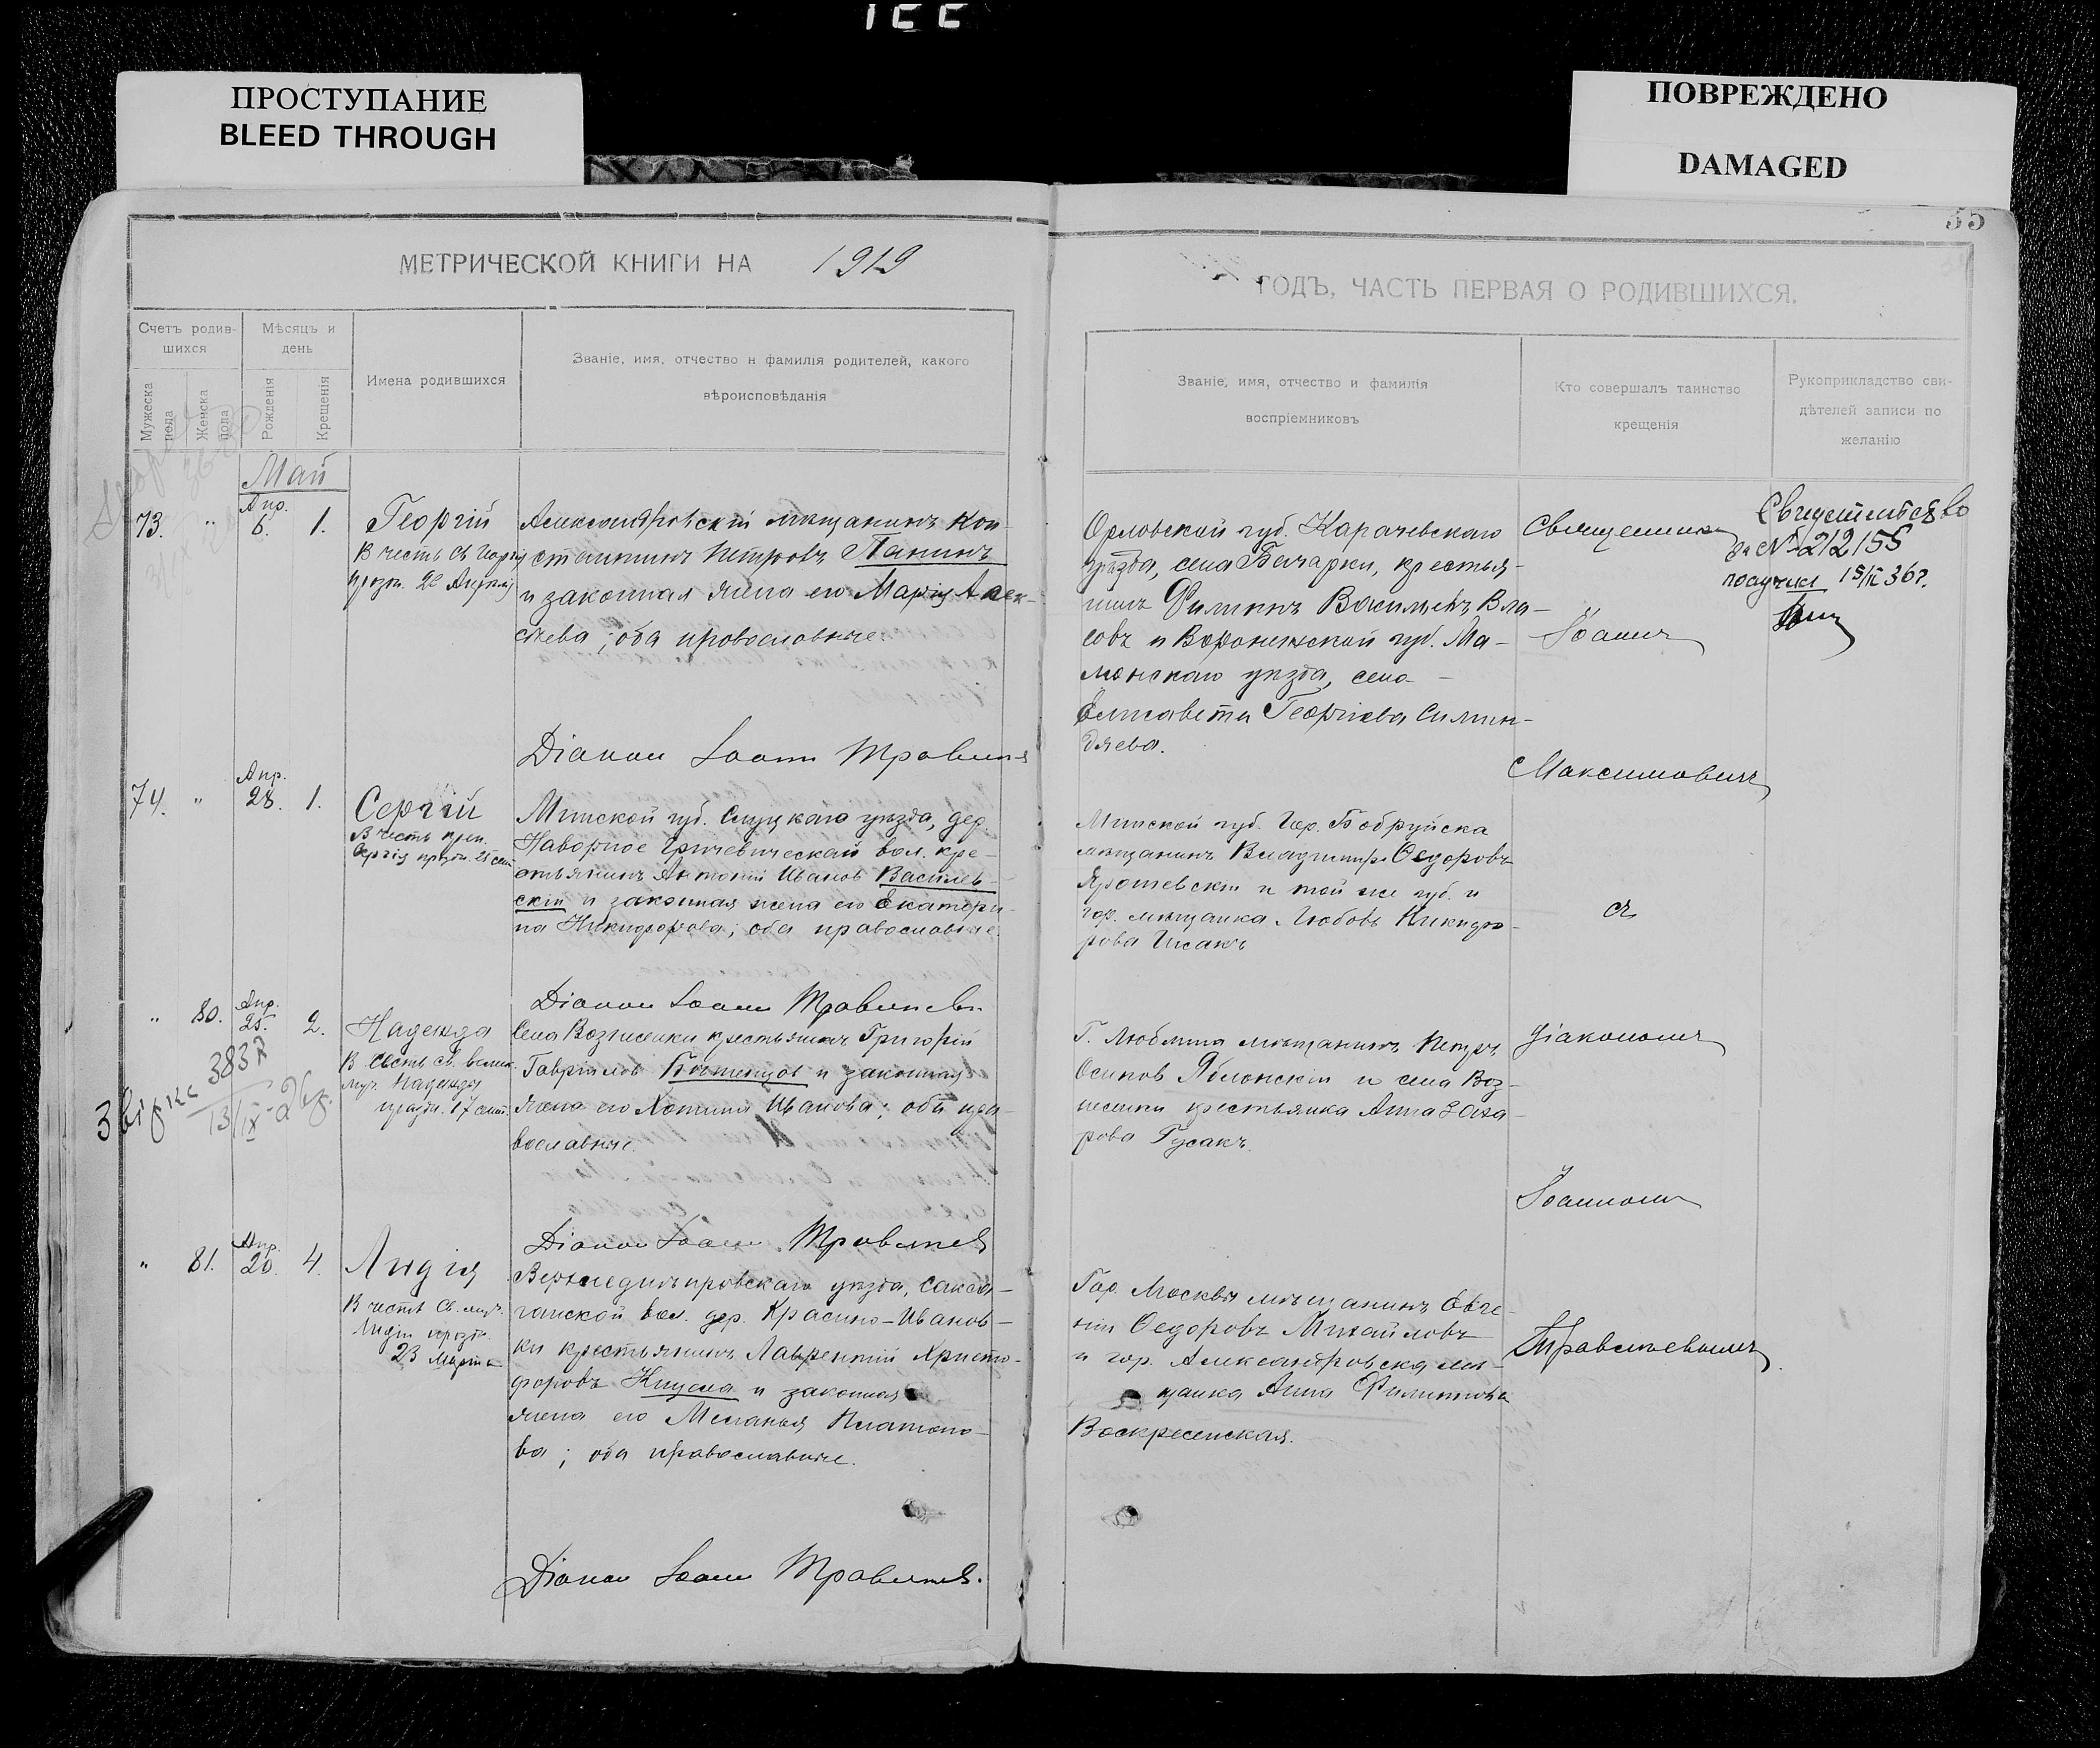 ПРОСТУПАНИЕ
BLEED THROUGH
ПОВРЕЖДЕНО
DAMAGED
55
МЕТРИЧЕСКОЙ КНИГИ НА 1919
ГОДЪ, ЧАСТЬ ПЕРВАЯ О РОДИВШИХСЯ.
Счетъ родив-
шихся
Мужеска
пола
Женска
пола
Мѣсяцъ и
день
Рожденія
Крещенія
Имена родившихся
Званіе, имя, отчество и фамилія родителей, какого
вѣроисповѣданія
Званіе, имя, отчество и фамилія
воспріемниковъ
Кто совершалъ таинство
крещенія
Рукоприкладство сви-
дѣтелей записи по
желанію
Май
73. " Апр. 6. 1.
Георгій
В честь св. Георгія
празд. 23 Апрѣля
Александровскій мѣщанинъ Кон-
стантинъ Петровъ Панинъ
и законная жена его Марія Алек-
сѣева; оба православные.
Діакон Іоанн Травинев
Орловской губ. Карачевскаго
уѣзда, села Бачарки, крестья-
нинъ Филиппъ Васильевъ Вла-
совъ и Воронежской губ. Ма-
монскаго уѣзда, села -
Елисавета Георгіева Симин-
дяева.
Священник
Іоанн
Максимович
Свидетельство
за № 212155
получил 15/II 36 г.
74. " Апр. 28. 1.
Сергій
В честь преп.
Сергія празд. 25 сент.
Минской губ. Слуцкаго уѣзда, дер.
Наворное Гричевической вол. кре-
стьянинъ Антоній Иванов Василев-
скій и законная жена его Екатери-
на Никифорова; оба православные.
Діакон Іоанн Травинев
Минской губ. Гор. Бобруйска
мѣщанинъ Владимир Ѳедоровъ
Ярошевскій и той же губ. и
гор. мѣщанка Любовь Никифо-
рова Гисакъ
съ
" 80. Апр. 25. 2.
Надежда
В честь св. велик.
муч. Надежды
празд. 17 сент.
Села Вознесенки крестьянинъ Григорій
Гавріилов Богатцов и законная
жена его Хотинія Иванова; оба пра-
вославные.
Діакон Іоанн Травинев
Г. Люблина мѣщанинъ Петръ
Осипов Яблонскій и села Воз-
несенки крестьянка Анна Заха-
рова Гусакъ.
Діакономъ
Іоанном
Звірка 3837
13/IX-
" 81. Апр. 20. 4.
Лидія
В честь св. муч.
Лидіи празд.
23 Марта
Верхнеднѣпровскаго уѣзда, Сакса-
ганской вол. дер. Красино-Иванов-
ки крестьянинъ Лаврентій Христо-
форовъ Кицела и законная
жена его Меланья Платоно-
ва; оба православные.
Діакон Іоанн Травинев.
Гор. Москвы мѣщанинъ Евге-
ній Ѳедоровъ Михайловъ
и гор. Александровска мѣ-
щанка Анна Филиппова
Воскресенская.
Травиневымъ